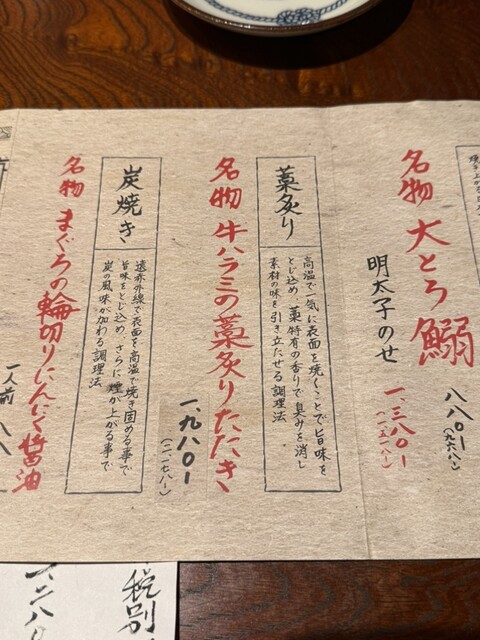 名物 大とろ鰯
八八〇ー
(九六八ー)
明太子のせ
一、三八〇ー
(一五一八ー)
藁炙り
高温で一気に表面を焼くことで旨味を
とじ込め、藁特有の香りで臭みを消し
素材の味を引き立たせる調理法
名物 牛ハラミの藁炙りたたき
一、九八〇ー
(二一七八ー)
炭焼き
遠赤外線で表面を高温で焼き固める事で
旨味をとじ込め、さらに煙が上がる事で
炭の風味が加わる調理法
名物 まぐろの輪切りにんにく醤油
一人前 八八
税別